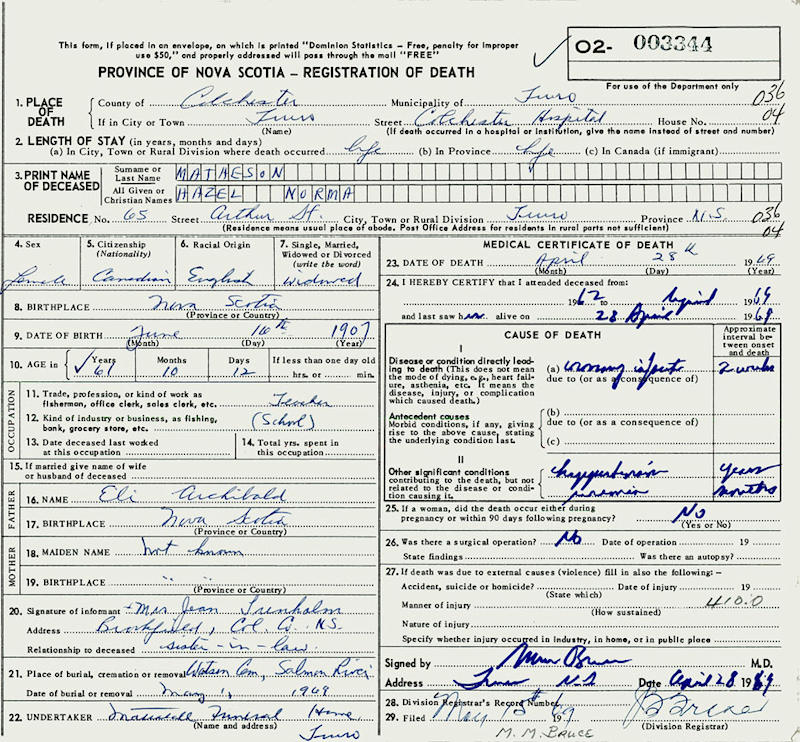 This form, if placed in an envelope, on which is printed "Dominion Statistics – Free, penalty for improper
use $50," and properly addressed will pass through the mail "FREE"
02- 003344
PROVINCE OF NOVA SCOTIA – REGISTRATION OF DEATH
For use of the Department only
1. PLACE OF DEATH County of Colchester Municipality of Truro 036
If in City or Town Truro Street Colchester Hospital House No. 04
(Name) (If death occurred in a hospital or institution, give the name instead of street and number)
2. LENGTH OF STAY (in years, months and days)
(a) In City, Town or Rural Division where death occurred life (b) In Province life (c) In Canada (if immigrant)
3. PRINT NAME OF DECEASED Surname or Last Name MATHESON
All Given or Christian Names HAZEL NORMA
RESIDENCE No. 65 Street Arthur St. City, Town or Rural Division Truro Province N.S. 036
(Residence means usual place of abode. Post Office Address for residents in rural parts not sufficient) 04
4. Sex 5. Citizenship (Nationality) 6. Racial Origin 7. Single, Married, Widowed or Divorced (write the word)
Female Canadian English Widowed
8. BIRTHPLACE Nova Scotia
(Province or Country)
9. DATE OF BIRTH June 16th 1907
(Month) (Day) (Year)
10. AGE in Years Months Days If less than one day old
61 10 12 hrs. or min.
OCCUPATION
11. Trade, profession, or kind of work as fisherman, office clerk, sales clerk, etc. Teacher
12. Kind of industry or business, as fishing, bank, grocery store, etc. (School)
13. Date deceased last worked at this occupation 14. Total yrs. spent in this occupation
15. If married give name of wife or husband of deceased
FATHER
16. NAME Eli Archibald
17. BIRTHPLACE Nova Scotia
(Province or Country)
MOTHER
18. MAIDEN NAME not known
19. BIRTHPLACE " "
(Province or Country)
20. Signature of informant Mrs Jean Trenholm
Address Brookfield, Col. Co. N.S.
Relationship to deceased sister-in-law
21. Place of burial, cremation or removal Watson Cem, Salmon River
Date of burial or removal May 1, 1969
22. UNDERTAKER Funeral Home
(Name and address) Truro
MEDICAL CERTIFICATE OF DEATH
23. DATE OF DEATH April 28th 1969
(Month) (Day) (Year)
24. I HEREBY CERTIFY that I attended deceased from:
1962 to April 1969
and last saw her alive on 28 April 1969
CAUSE OF DEATH
Approximate interval between onset and death
I
Disease or condition directly leading to death (This does not mean the mode of dying, e.g., heart failure, asthenia, etc. It means the disease, injury, or complication which caused death.)
(a) coronary infarct 2 weeks
due to (or as a consequence of)
Antecedent causes
Morbid conditions, if any, giving rise to the above cause, stating the underlying condition last.
(b)
due to (or as a consequence of)
(c)
II
Other significant conditions contributing to the death, but not related to the disease or condition causing it.
hypertension years
months
25. If a woman, did the death occur either during pregnancy or within 90 days following pregnancy? No
(Yes or No)
26. Was there a surgical operation? No Date of operation 19
State findings Was there an autopsy?
27. If death was due to external causes (violence) fill in also the following:–
Accident, suicide or homicide? Date of injury 19
(State which)
Manner of injury 410.0
(How sustained)
Nature of injury
Specify whether injury occurred in industry, in home, or in public place
Signed by Bruce M.D.
Address Truro N.S. Date April 28 1969
28. Division Registrar's Record Number
29. Filed May 1969
(Division Registrar)
M. M. BRUCE